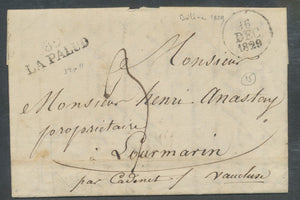 Bollène 1829
LA PALUD
16
DEC
1829
Monsieur
Monsieur henri Anastay
propriétaire
à Lourmarin
par Cadenet / Vaucluse